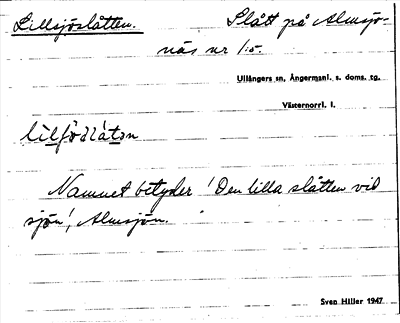 Lillsjöslåtten. Slått på Almsjö-
näs nr 1:5.
Ullångers sn, Ångermanl. s. doms. tg.
Västernorrl. l.
Namnet betyder 'Den lilla slåtten vid
sjön', Almsjön.
Sven Hiller 1947